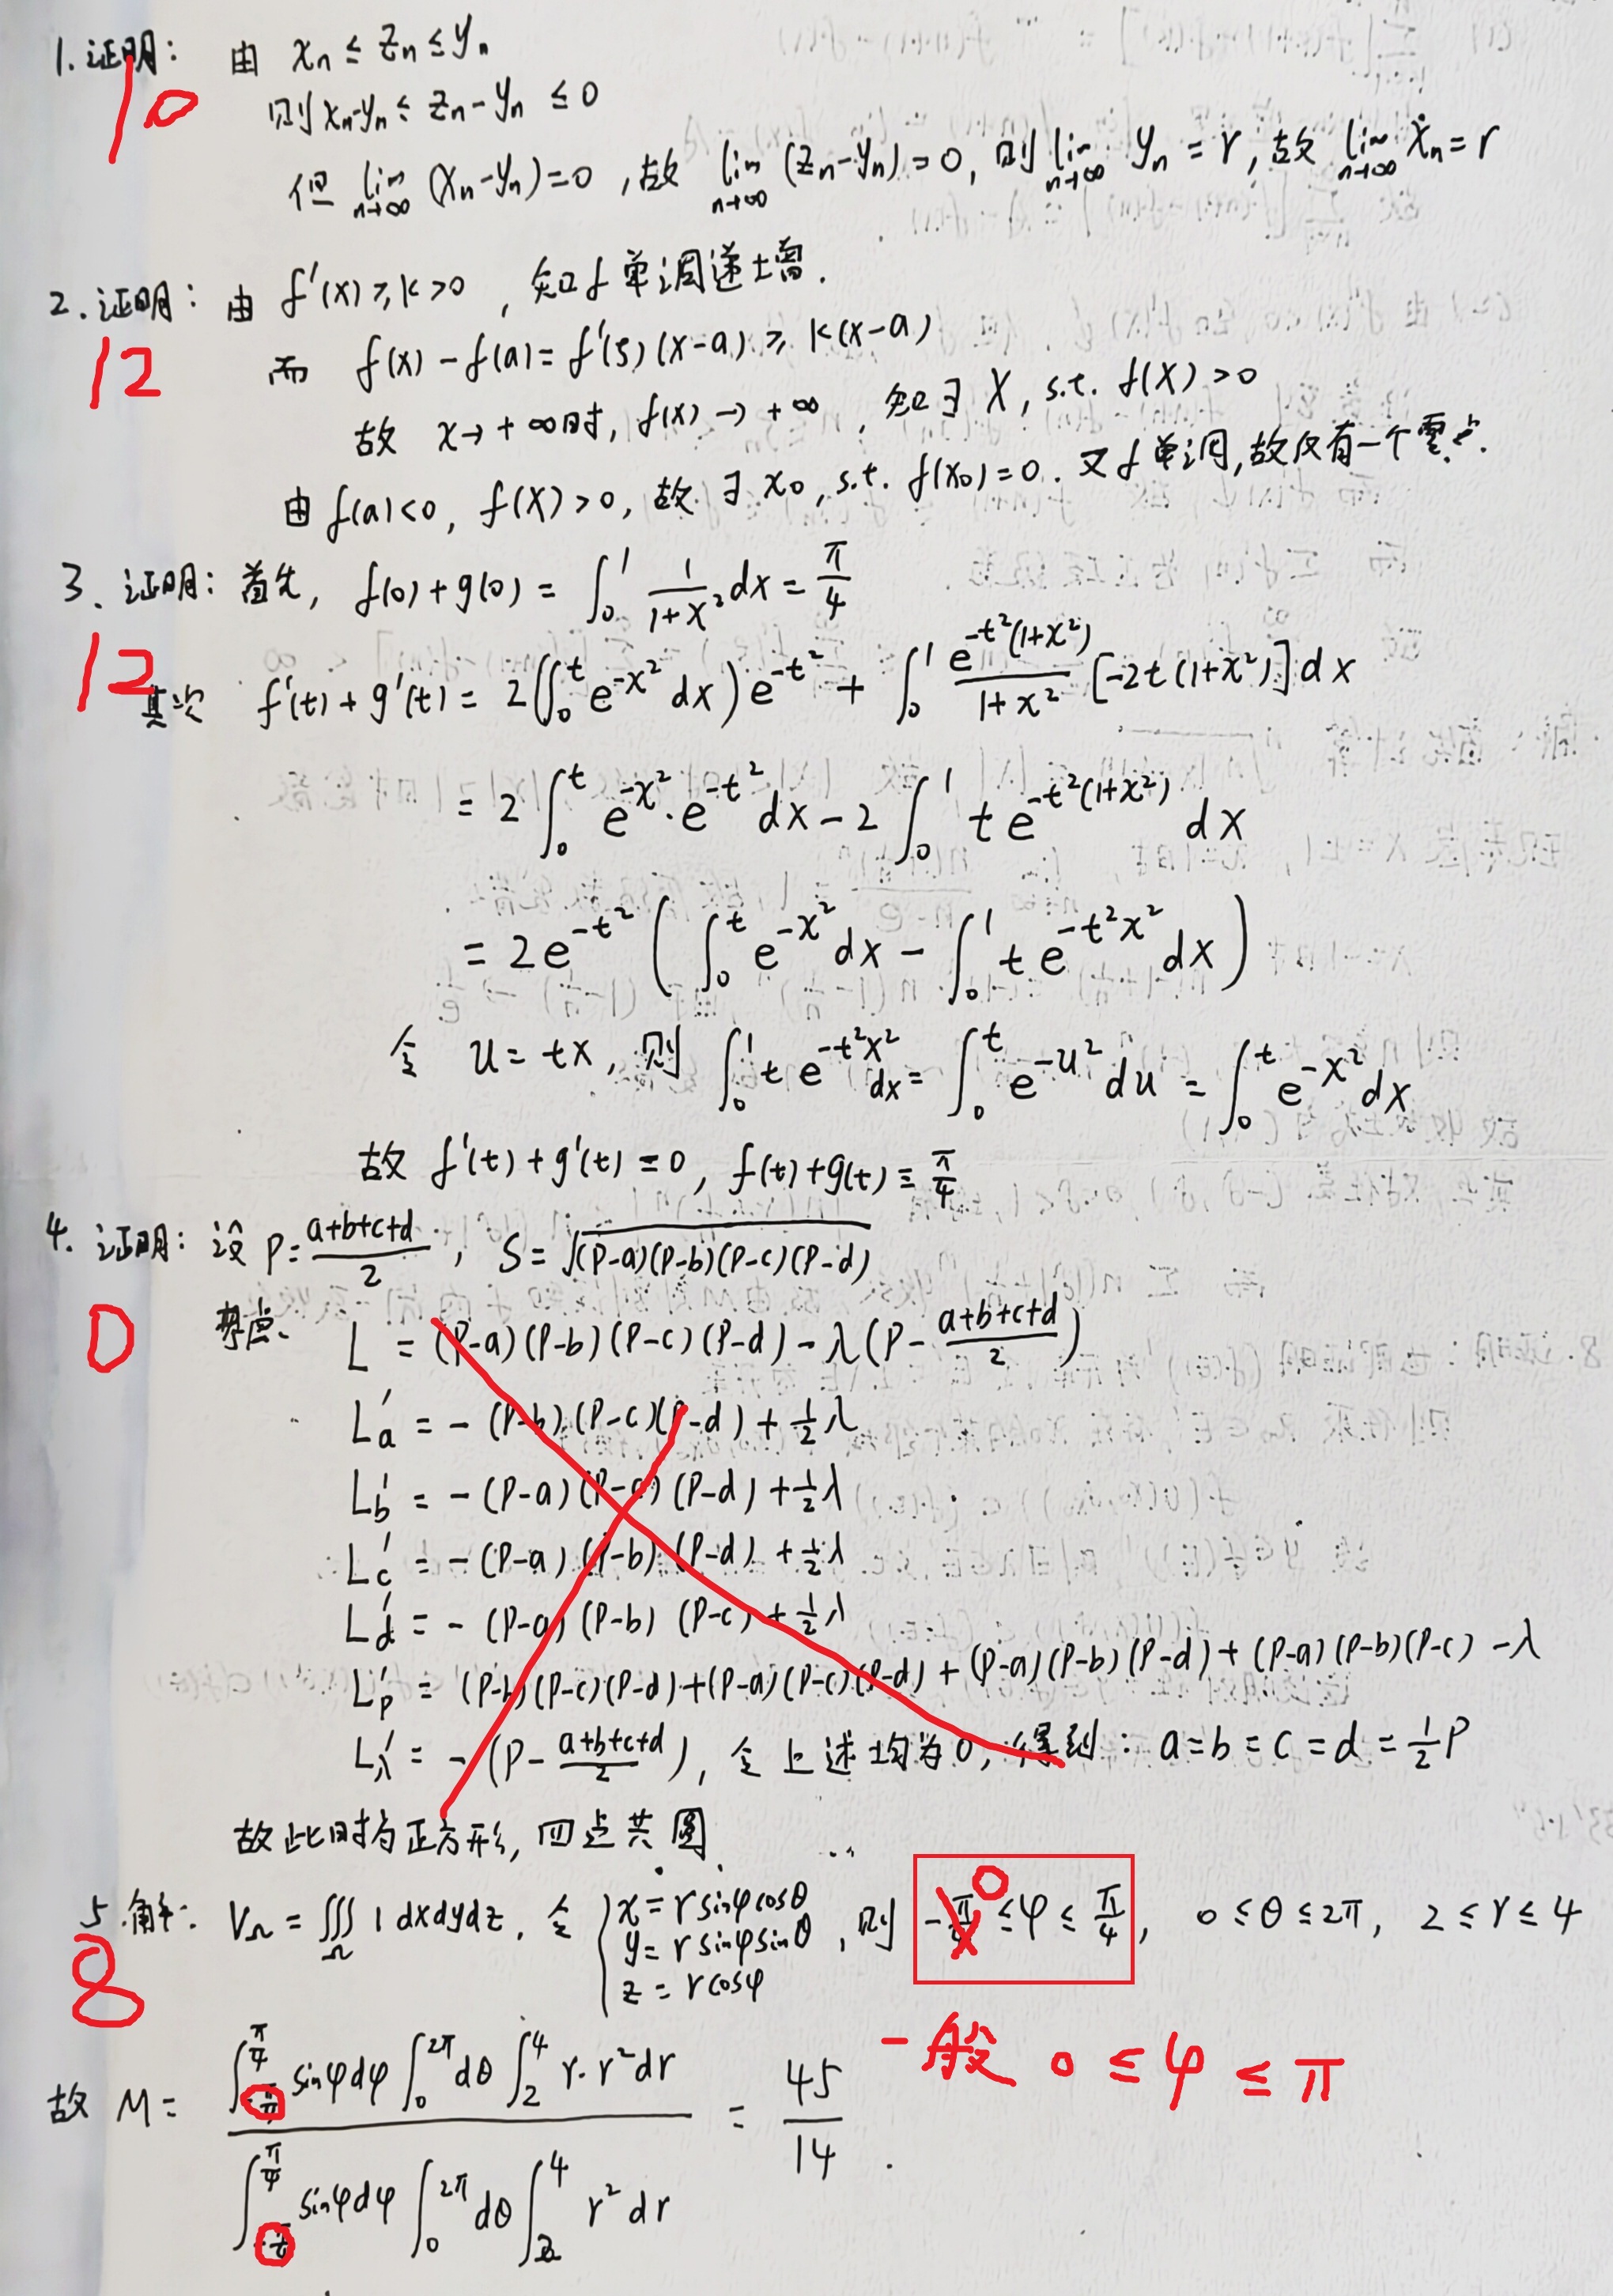 1. 证明： 由 xₙ ≤ zₙ ≤ yₙ
10
则 xₙ-yₙ ≤ zₙ-yₙ ≤ 0
但 lim_{n→∞} (xₙ-yₙ)=0 ,故 lim_{n→∞} (zₙ-yₙ)=0, 则 lim_{n→∞} yₙ = r, 故 lim_{n→∞} xₙ = r
2. 证明： 由 f'(x) ≥ k > 0 , 知 f 单调递增.
12
而 f(x) - f(a) = f'(ξ)(x-a) ≥ k(x-a)
故 x→+∞时, f(x)→+∞ , 知∃ X, s.t. f(X) > 0
由 f(a)<0, f(X)>0, 故 ∃ x₀, s.t. f(x₀)=0. 又 f 单调,故仅有一个零点.
3. 证明： 首先, f(0)+g(0) = ∫₀¹ 1/(1+x²) dx = π/4
12
其次 f'(t)+g'(t) = 2(∫₀ᵗ e^{-x²} dx) e^{-t²} + ∫₀¹ e^{-t²(1+x²)}/(1+x²) [-2t(1+x²)] dx
= 2 ∫₀ᵗ e^{-x²}·e^{-t²} dx - 2 ∫₀¹ t e^{-t²(1+x²)} dx
= 2e^{-t²} ( ∫₀ᵗ e^{-x²} dx - ∫₀¹ t e^{-t²x²} dx )
令 u = tx, 则 ∫₀¹ t e^{-t²x²} dx = ∫₀ᵗ e^{-u²} du = ∫₀ᵗ e^{-x²} dx
故 f'(t)+g'(t) = 0, f(t)+g(t) ≡ π/4
4. 证明： 设 P = (a+b+c+d)/2 , S = √((P-a)(P-b)(P-c)(P-d))
0
考虑 L = (P-a)(P-b)(P-c)(P-d) - λ(P - (a+b+c+d)/2)
L'a = -(P-b)(P-c)(P-d) + ½λ
L'b = -(P-a)(P-c)(P-d) + ½λ
L'c = -(P-a)(P-b)(P-d) + ½λ
L'd = -(P-a)(P-b)(P-c) + ½λ
L'p = (P-b)(P-c)(P-d)+(P-a)(P-c)(P-d)+(P-a)(P-b)(P-d)+(P-a)(P-b)(P-c) - λ
L'λ = -(P - (a+b+c+d)/2), 令上述均为0, 得到： a=b=c=d=½P
故此时为正方形, 四点共圆.
5. 解： V_Ω = ∭_Ω 1 dxdydz. 令 { x = r sinφ cosθ y = r sinφ sinθ z = r cosφ , 则 -π/4 ≤ φ ≤ π/4, 0 ≤ θ ≤ 2π, 2 ≤ r ≤ 4
0
8
一般 0 ≤ φ ≤ π
故 M = (∫_{-π/4}^{π/4} sinφdφ ∫₀^{2π} dθ ∫₂⁴ r·r² dr) / (∫_{-π/4}^{π/4} sinφdφ ∫₀^{2π} dθ ∫₂⁴ r² dr) = 45/14 .